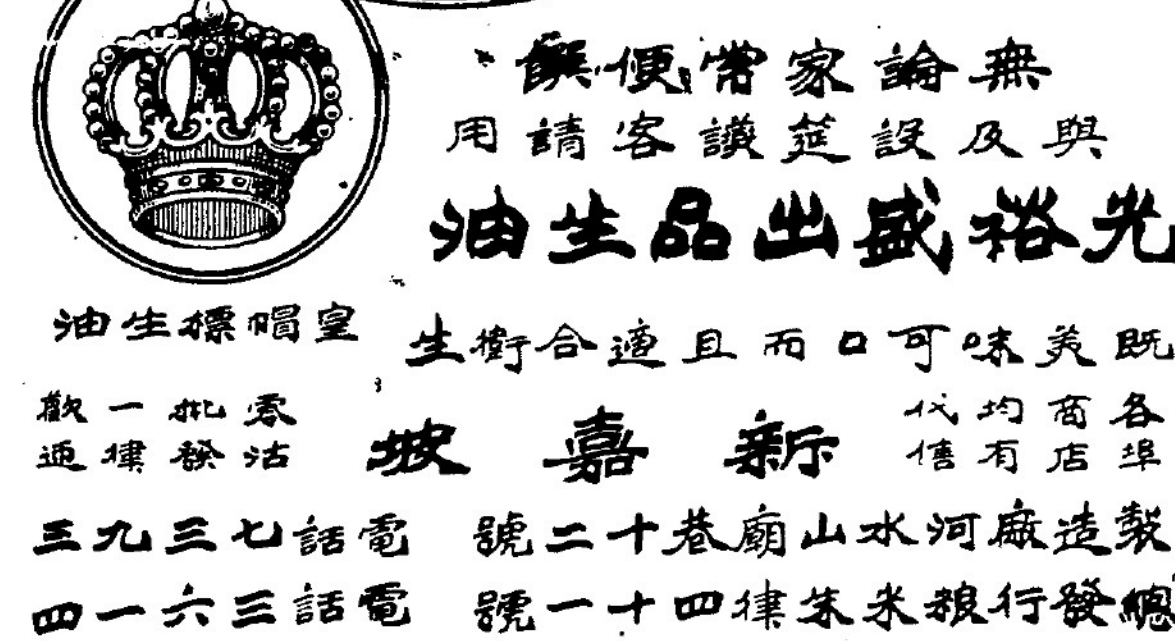 無論家常便饌
與及設筵讌客請用
光裕盛出品生油
既美味可口而且適合衛生
皇帽標生油
各埠商店均有代售
新嘉坡
零沽批發一律歡迎
製造廠河水山廟巷十二號 電話七三九三
總發行粮米朱律四十一號 電話三六一四